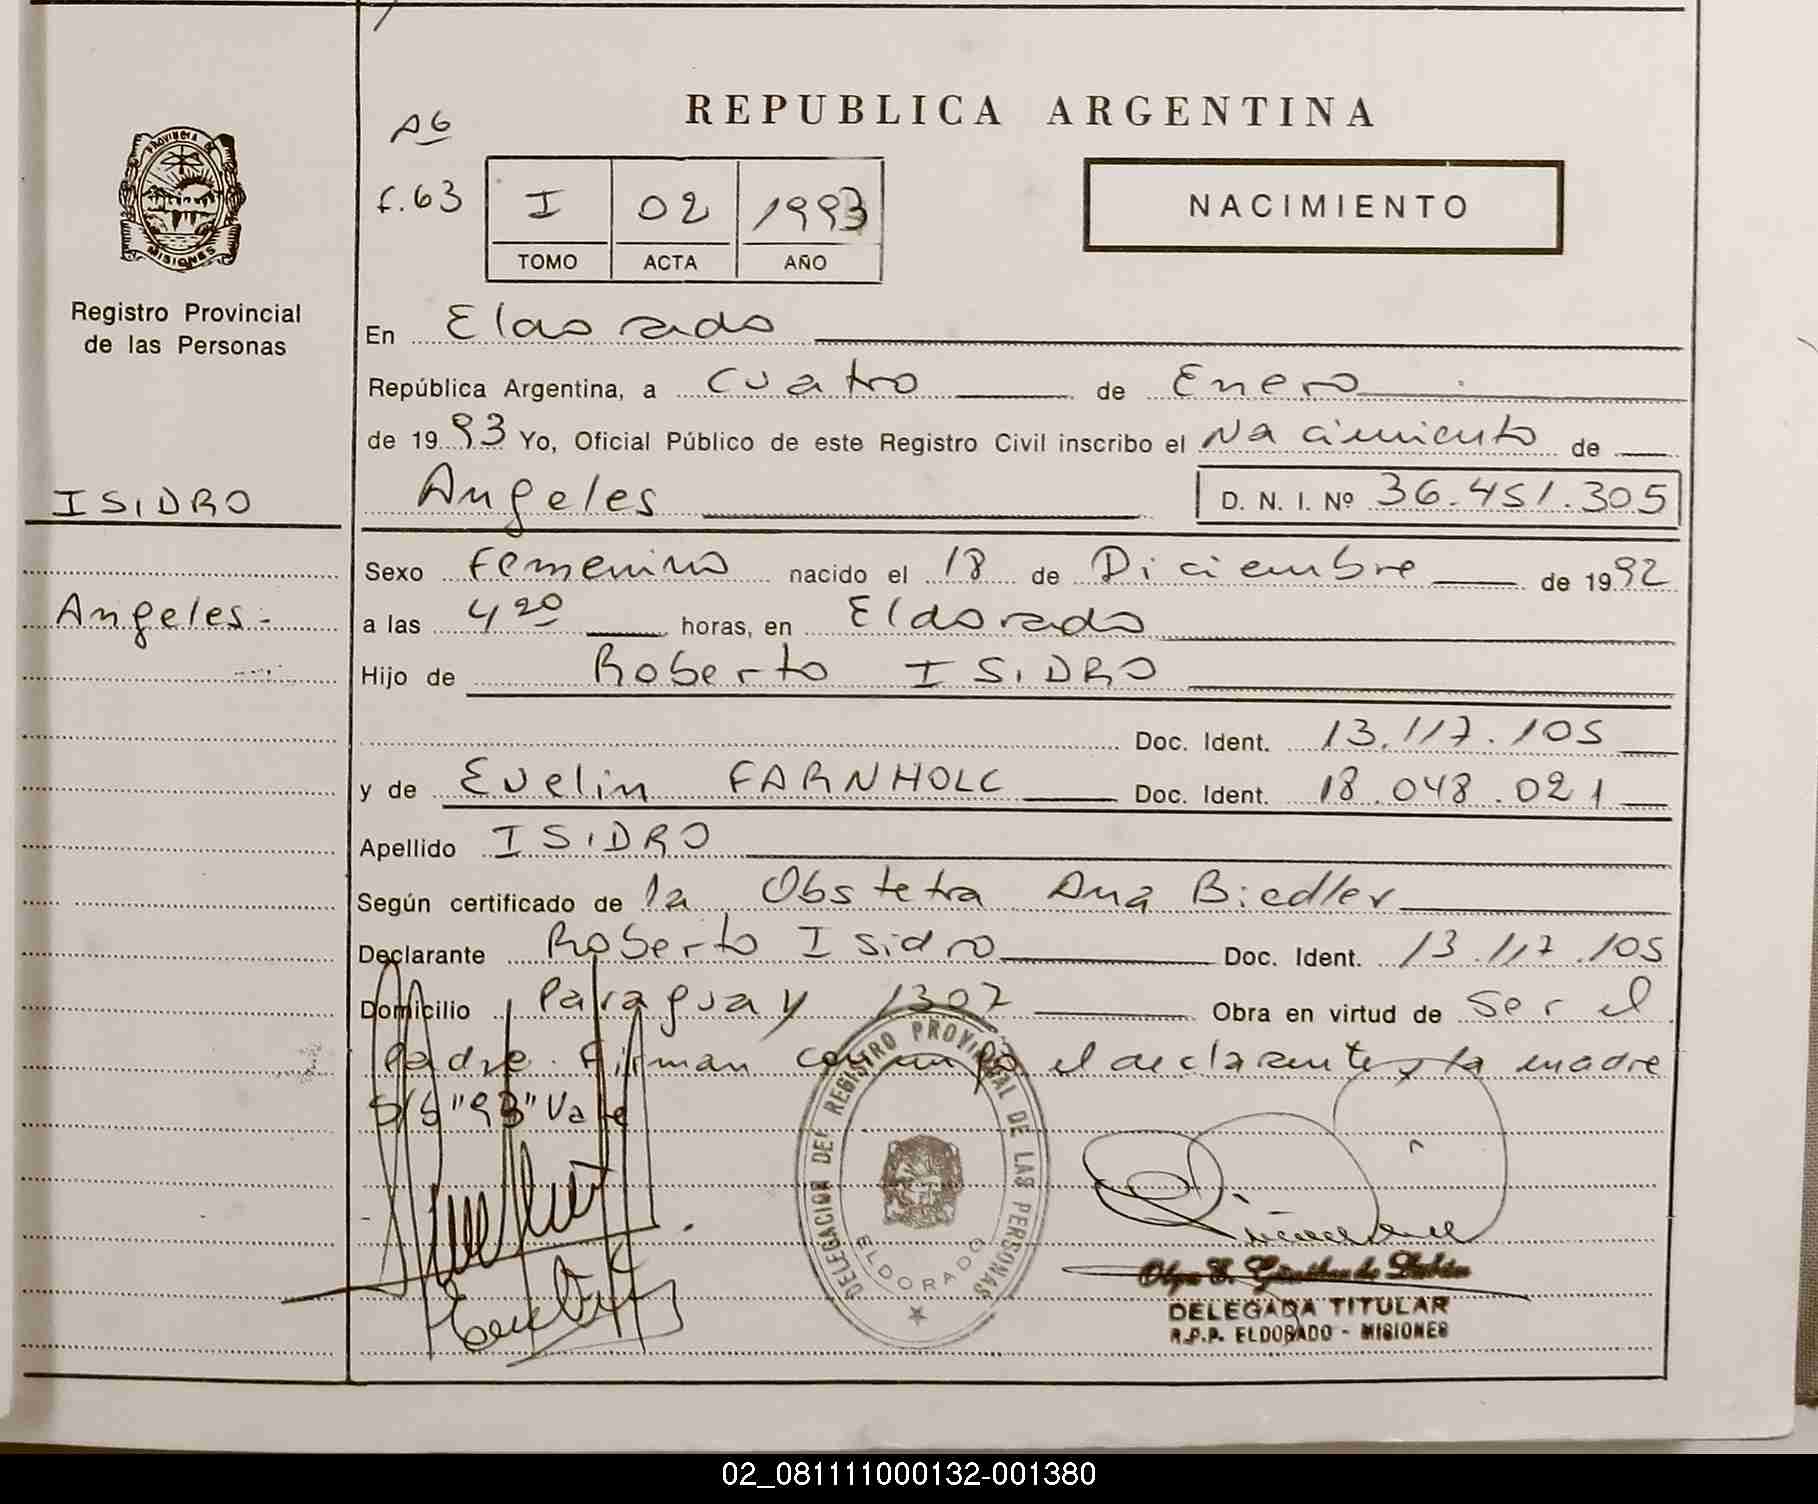 REPUBLICA ARGENTINA
A6
f. 63
I 02 1993
TOMO ACTA AÑO
NACIMIENTO
PROVINCIA DE
MISIONES
Registro Provincial
de las Personas
ISIDRO
Angeles.-
En Eldorado
República Argentina, a Cuatro de Enero
de 1993 Yo, Oficial Público de este Registro Civil inscribo el Nacimiento de
Angeles D. N. I. Nº 36.451.305
Sexo Femenino nacido el 18 de Diciembre de 1992
a las 4 20 horas, en Eldorado
Hijo de Roberto ISIDRO
Doc. Ident. 13.117.105
y de Evelin FARNHOLC Doc. Ident. 18.048.021
Apellido ISIDRO
Según certificado de la Obstetra Ana Biedler
Declarante Roberto Isidro Doc. Ident. 13.117.105
Domicilio Paraguay 1307 Obra en virtud de ser el
Padre. Firman conmigo el declarante y la madre
S/S "93" Vale
DELEGACION DEL REGISTRO PROVINCIAL DE LAS PERSONAS
ELDORADO
DELEGADA TITULAR
R.P.P. ELDORADO - MISIONES
02_081111000132-001380